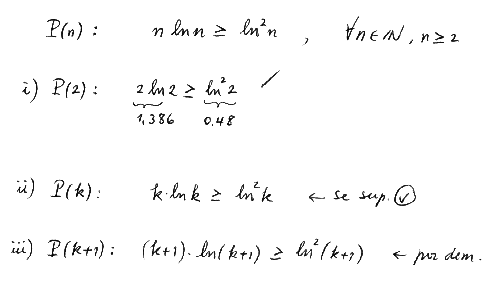 P(n) : n ln n ≥ ln²n , ∀n∈ℕ, n ≥ 2
i) P(2) : 2 ln 2 ≥ ln² 2 ✓
1,386 0.48
ii) P(k) : k·ln k ≥ ln² k ← se sup. ✓
iii) P(k+1) : (k+1)·ln(k+1) ≥ ln²(k+1) ← por dem.